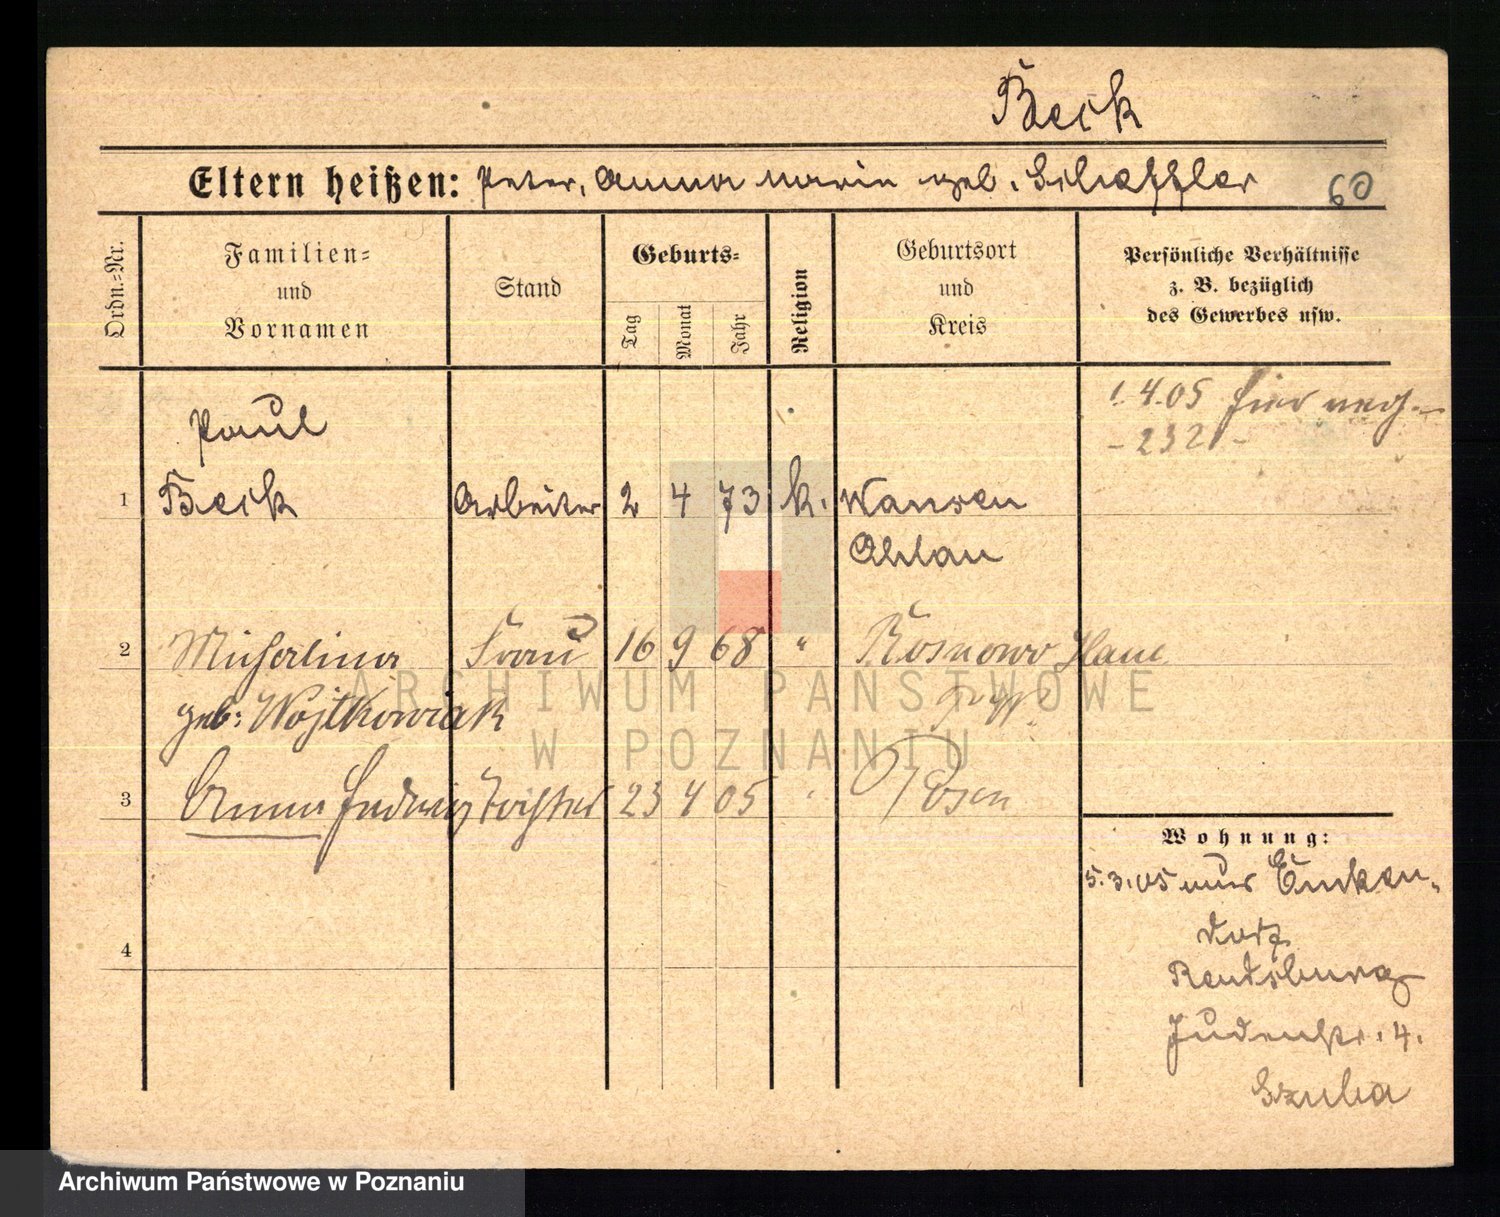 Beck
Eltern heißen: Peter, Anna Marie geb. Scheffler
60
Ordn.-Nr.
Familien-
und
Vornamen
Stand
Geburts-
Tag
Monat
Jahr
Religion
Geburtsort
und
Kreis
Persönliche Verhältnisse
z. B. bezüglich
des Gewerbes usw.
1.4.05 hier
- 232 -
Paul
1 Beck Arbeiter 2 4 73 k. Wansen
Ohlau
2 Michalina Frau 16 9 68 " Rosnowo
geb: Wojtkowiak
3 Anna Hedwig Tochter 23 4 05 " Posen
4
Wohnung:
5.3.05 aus Emken-
dorf
Rendsburg
Judenstr. 4.
ARCHIWUM PAŃSTWOWE
W POZNANIU
Archiwum Państwowe w Poznaniu